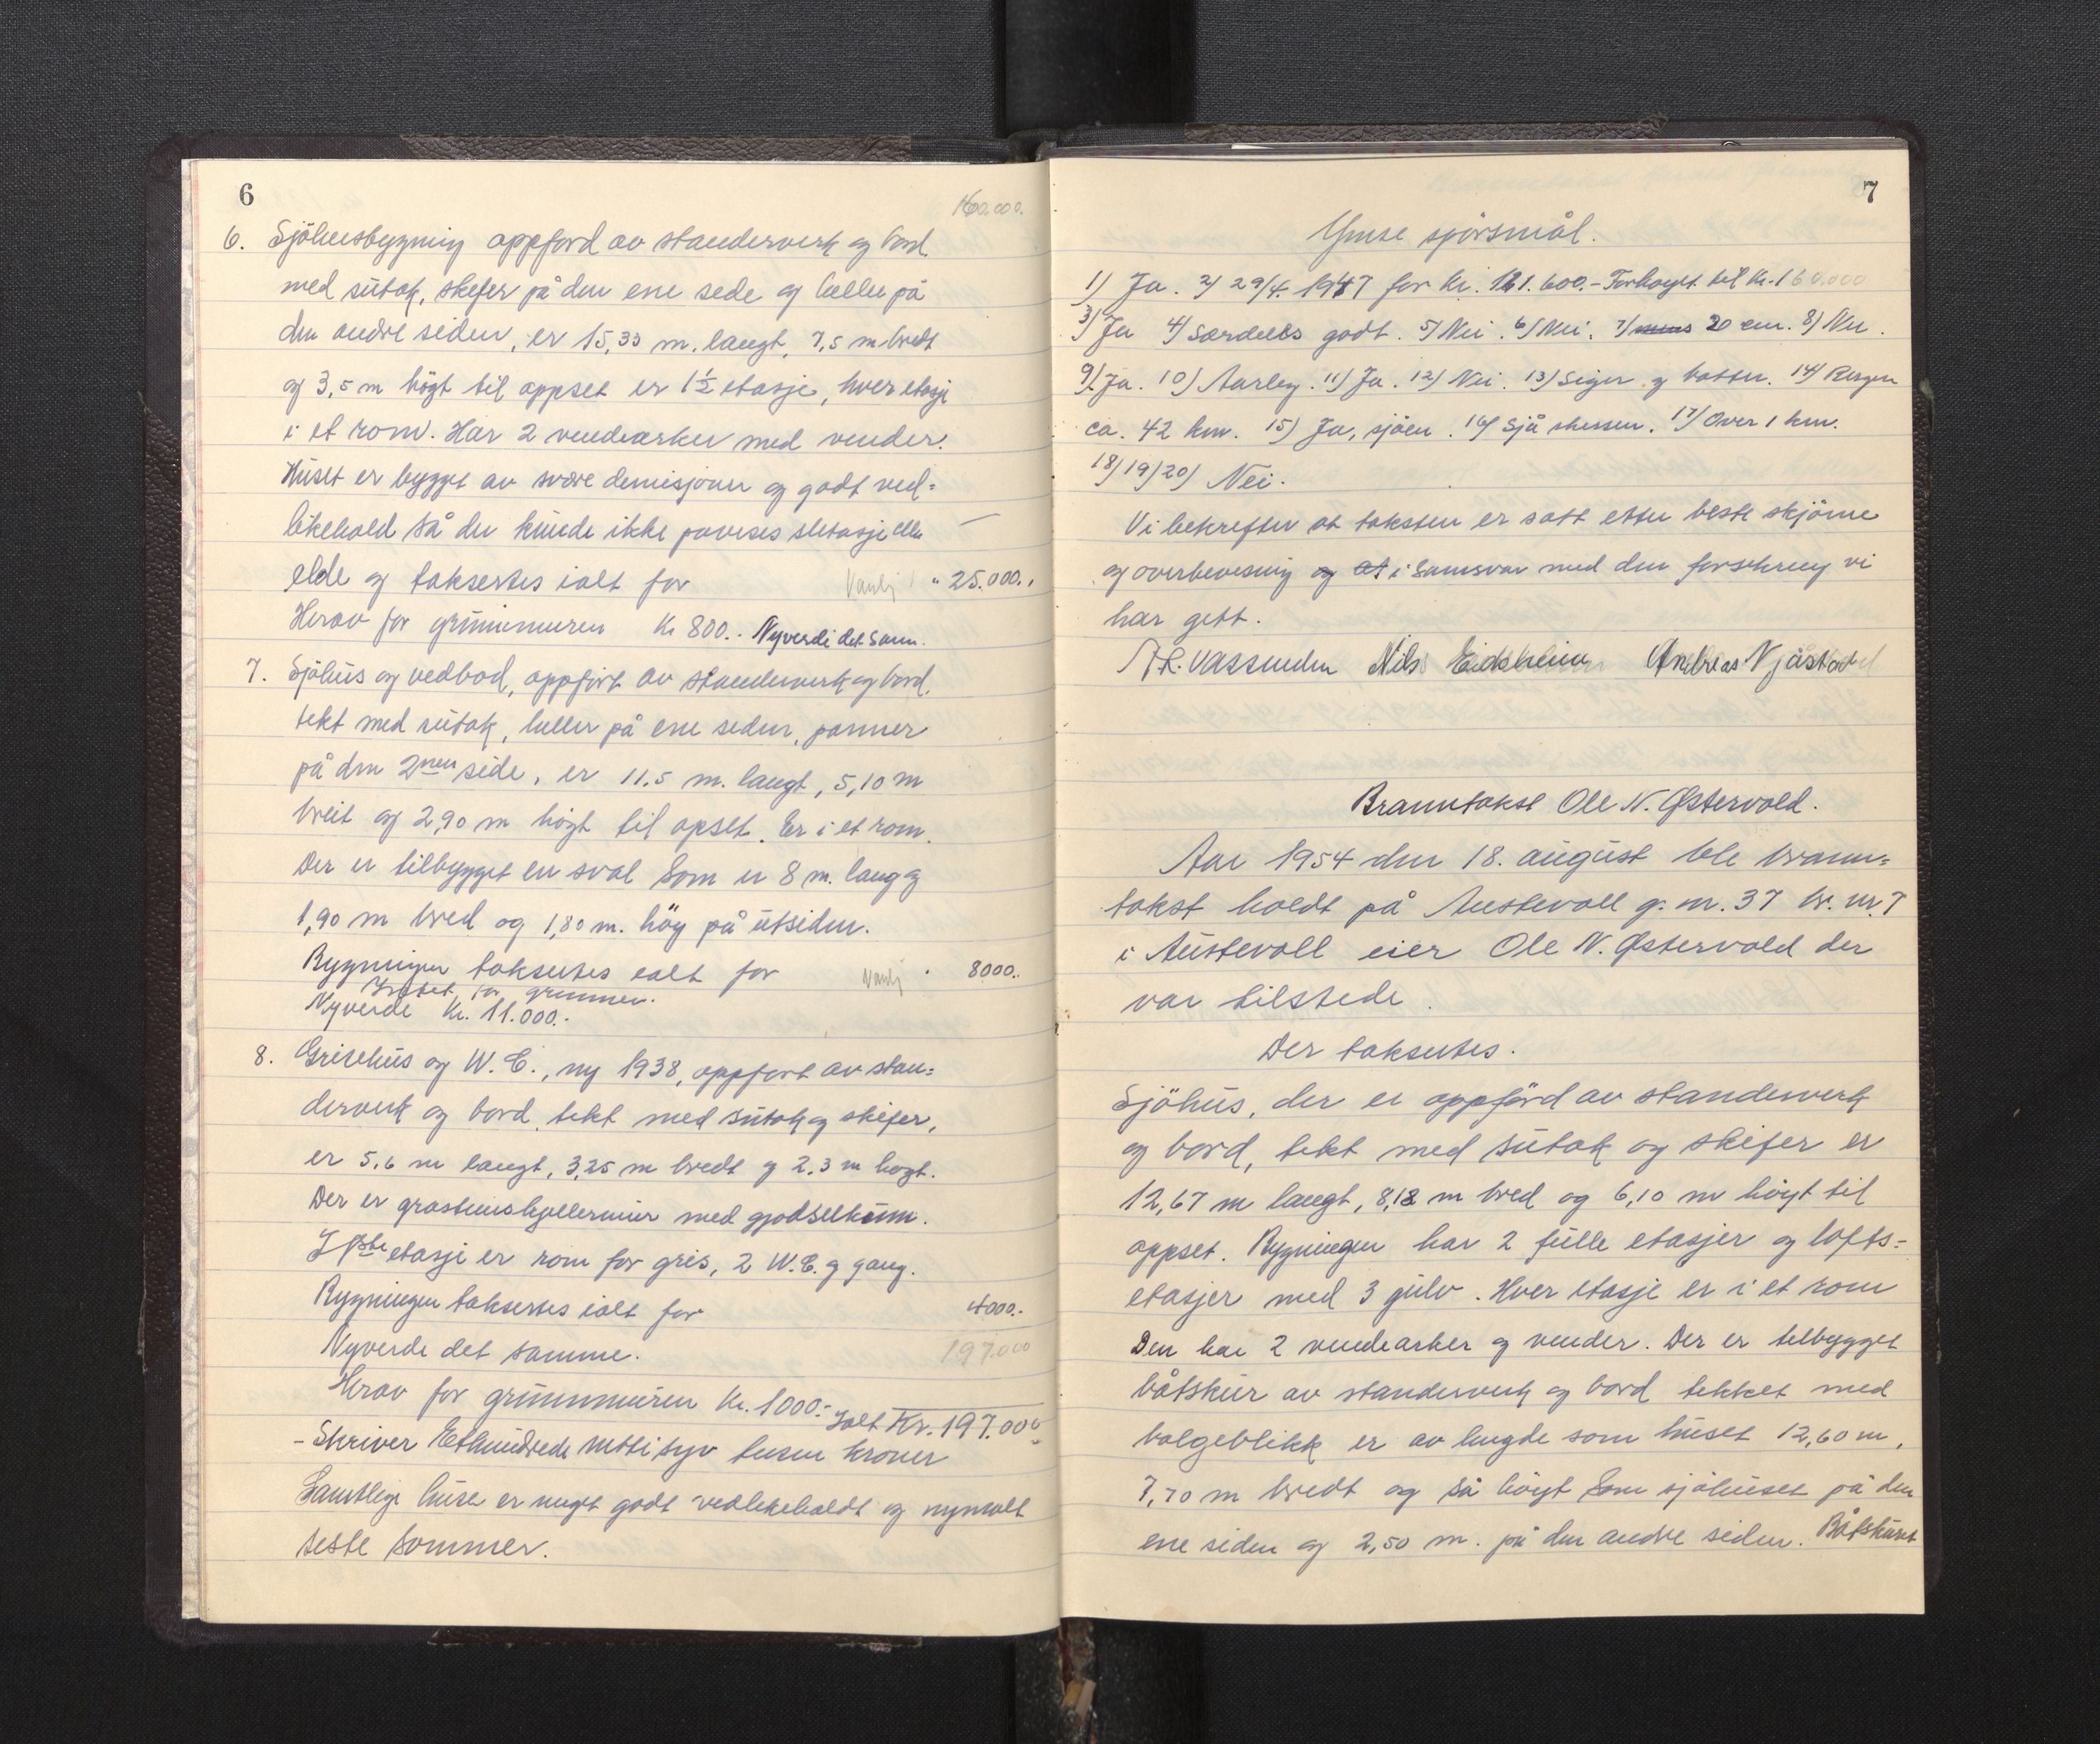 6
160.000.
6. Sjöhusbygning oppførd av standerverk og bord
med sutak, skifer på den ene sede og heller på
den andre siden, er 15,33 m. langt, 7,5 m bredt
og 3,5 m högt til oppset er 1½ etasje, hver etasje
i et rom. Har 2 vindearker med vinder.
Huset er bygget av svære demisjoner og godt ved-
likehold så der kunde ikke paveises slitasje eller
elde og takseres ialt for Vanlj " 25.000.,
Herav for grunnmuren Kr 800.- Nyverdi det samm.
7. Sjöhus og vedbod, oppført av standerverk og bord,
tekt med sutak, heller på ene siden, panner
på den 2nen side, er 11.5 m. langt, 5,10 m
breit og 2,90 m högt til opset. Er i et rom.
Der er tilbygget en sval som er 8 m. lang og
1,90 m bred og 1,80 m. höy på utsiden.
Bygningen takseres ialt for Vanlj " 8000..
Intet for grunnen.
Nyverde Kr. 11.000.-
8. Grisehus og W.C., ny 1938, oppført av stan-
derverk og bord, tekt med sutak og skifer,
er 5,6 m langt, 3,25 m bredt og 2.3 m høgt.
Der er gråsteinskjellermur med gjødselkum.
I 1ste etasje er rom for gris, 2 W.C. og gang.
Bygningen takseres ialt for 4000.-
Nyverde det samme. 197.000
Herav for grunnmuren Kr. 1000.- Ialt Kr. 197.000
- Skriver Ethundrede nitti syv tusen kroner
Samtlige huse er meget godt vedlikeholdt og nymalt
siste sommer.
7
Ymse spörsmål.
1) Ja. 2) 29/4. 1947 for Kr. 161.600.- Forhøyet til Kr. 160.000
3) Ja 4) Særdeles godt. 5) Nei. 6) Nei. 7) 20 cm. 8) Nei.
9) Ja. 10) Aarleg. 11) Ja. 12) Nei. 13) Siger og bøtter. 14) Bergen
ca. 42 km. 15) Ja, sjöen. 16) Sjå skissen. 17) Over 1 km.
18) 19) 20) Nei.
Vi bekrefter at taksten er satt etter beste skjönne
og overbevisning og at i samsvar med den forsikring vi
har gett.
Vassenden Nils Eidsheim Andreas Njåstad
Branntakst Ole N. Østervold.
Aar 1954 den 18. august ble brann-
takst holdt på Austevoll g. nr. 37 br. nr. 7
i Austevoll eier Ole N. Østervold der
var tilstede.
Der takseres.
Sjöhus, der er oppförd av standerverk
og bord, tekt med sutak og skifer er
12,67 m langt, 8,18 m bred og 6,10 m höyt til
oppset. Bygningen har 2 fulle etasjer og lofts-
etasjer med 3 gulv. Hver etasje er i et rom
Den har 2 vindearker og vinder. Der er tilbygget
båtskur av standerverk og bord tekket med
bølgeblikk er av lengde som huset 12,60 m,
7,70 m bredt og så höyt som sjöhuset på den
ene siden og 2,50 m. på den andre siden. Båtskuret